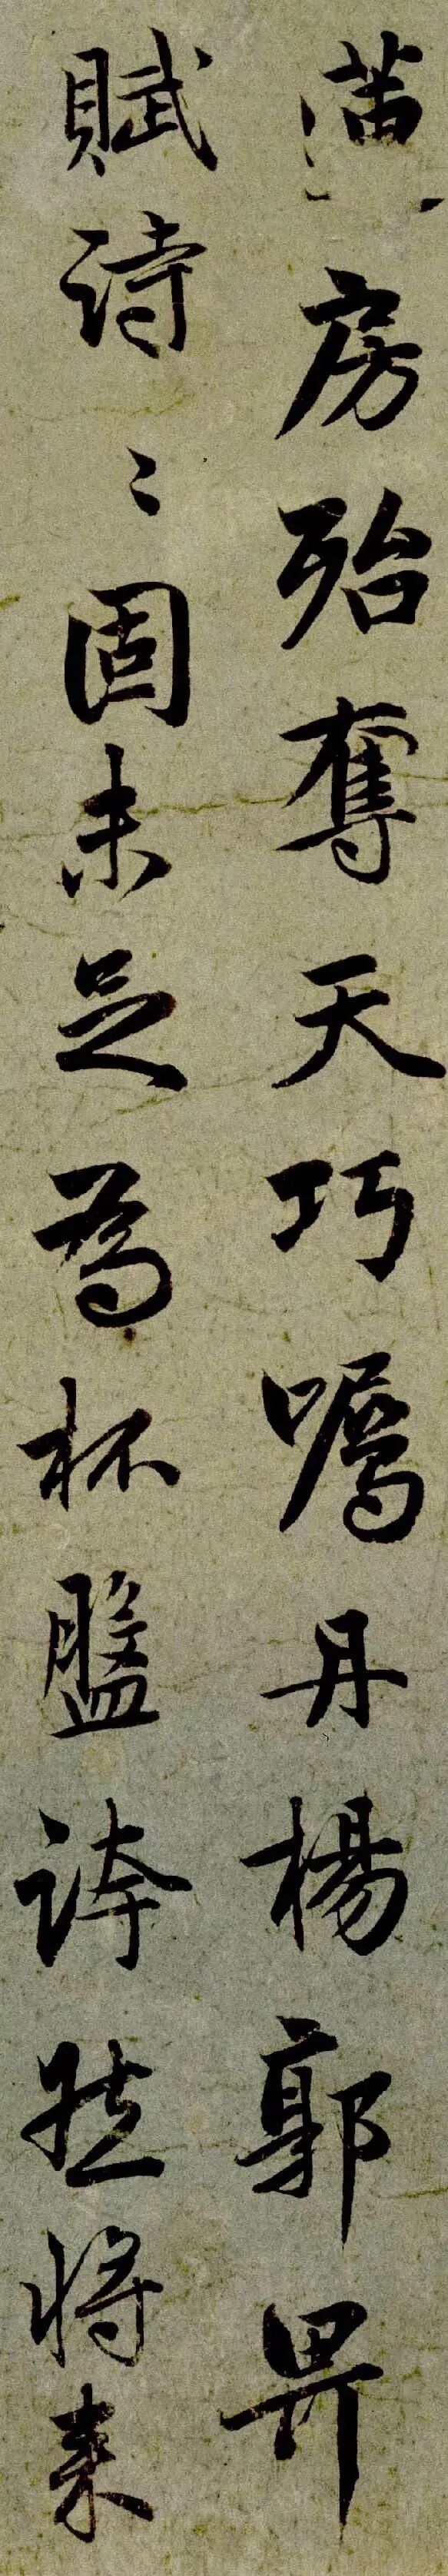 房殆奪天巧囑丹楊郭畀
賦詩〻固未足為杯盤誇然將来